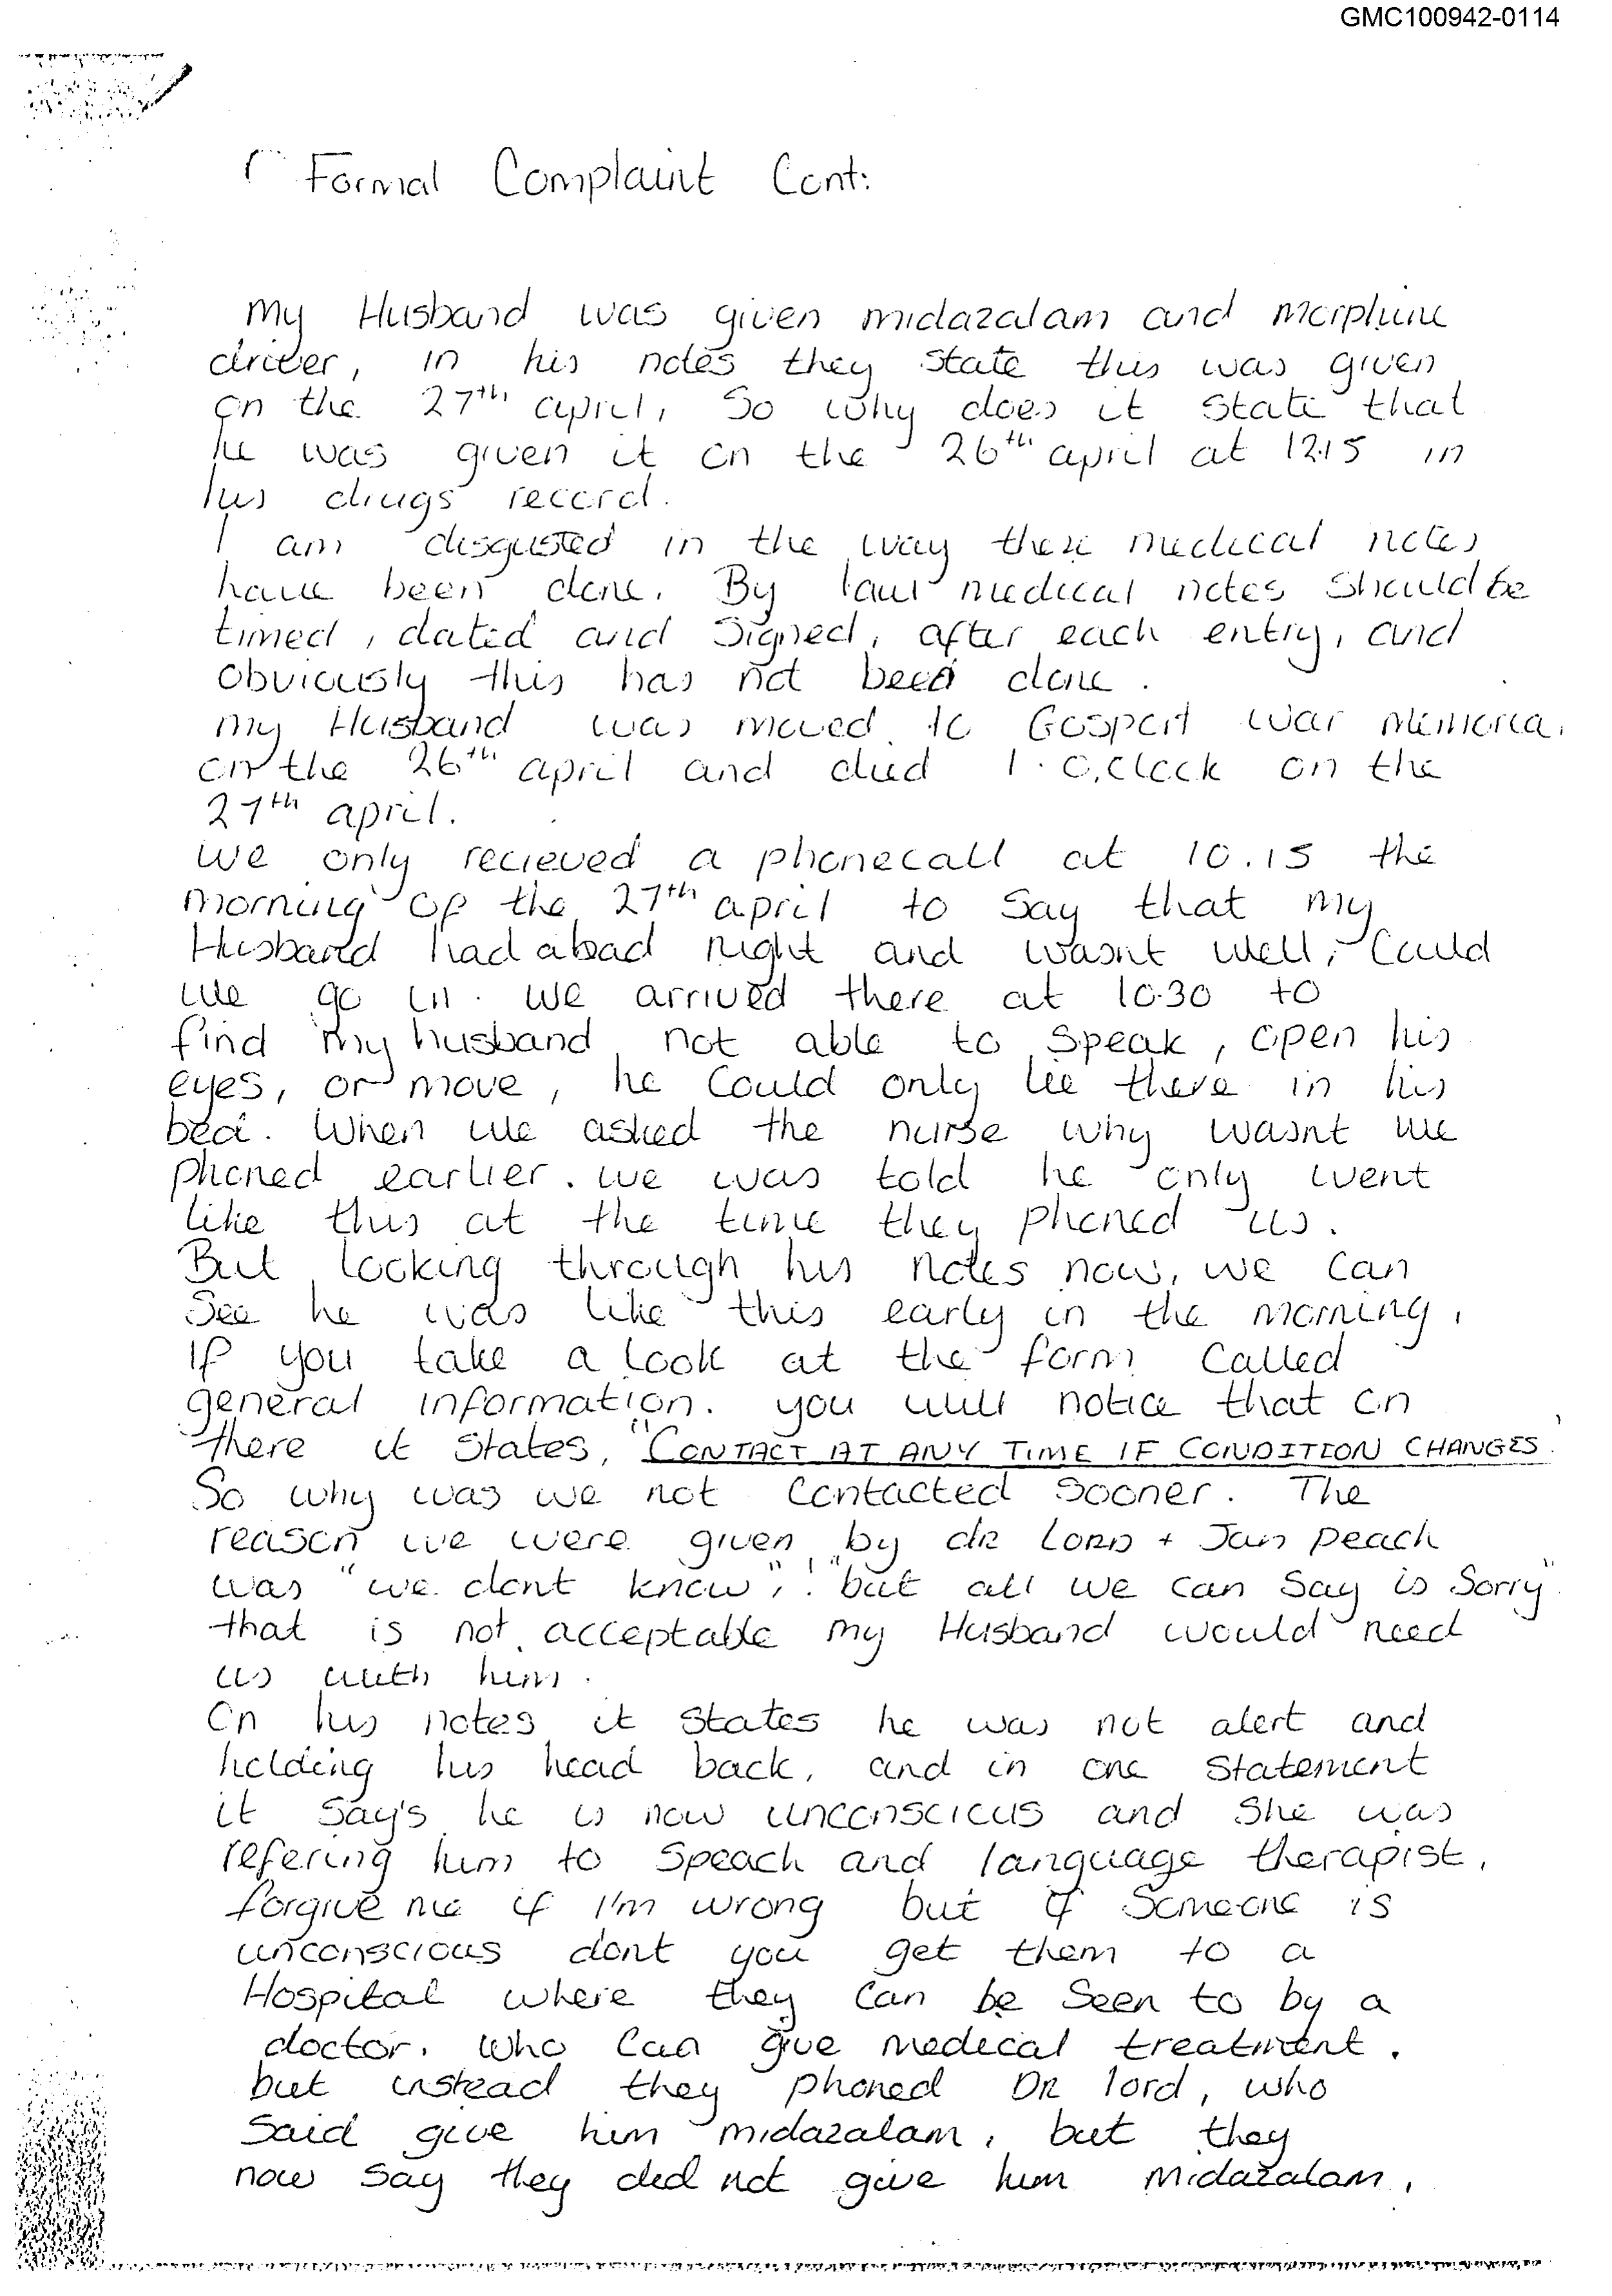 GMC100942-0114
Formal Complaint Cont:
My Husband was given midazalam and morphine
driver, in his notes they state this was given
on the 27th april, So why does it state that
he was given it on the 26th april at 12.15 in
his drugs record.
I am disgusted in the way these medical notes
have been done. By law medical notes should be
timed, dated and signed, after each entry, and
obviously this has not been done.
my Husband was moved to Gosport war memoria
on the 26th april and died 1.O,clock on the
27th april.
we only recieved a phonecall at 10.15 the
morning of the 27th april to say that my
Husband had abad night and wasnt well, Could
we go in. we arrived there at 10.30 to
find my husband not able to speak, open his
eyes, or move, he could only lie there in his
bed. When we asked the nurse why wasnt we
phoned earlier. we was told he only went
like this at the time they phoned us.
But looking through his notes now, we can
see he was like this early in the morning,
If you take a look at the form called
general information. you will notice that on
there it states, "CONTACT AT ANY TIME IF CONDITION CHANGES.
So why was we not contacted sooner. The
reason we were given by dr LORD + Jan peach
was "we dont know", ! "but all we can say is Sorry"
that is not acceptable my Husband would need
us with him.
On his notes it states he was not alert and
holding his head back, and in one statement
it say's he is now unconscious and she was
refering him to speach and language therapist,
forgive me if I'm wrong but if someone is
unconscious dont you get them to a
Hospital where they can be seen to by a
doctor. who can give medical treatment.
but instead they phoned DR lord, who
said give him midazalam, but they
now say they did not give him midazalam,